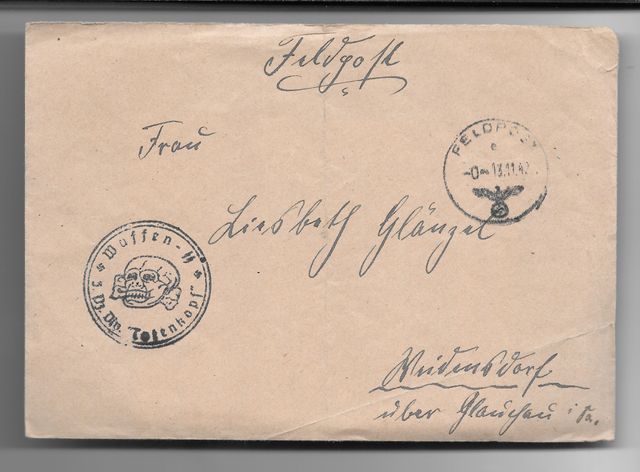 Feldpost
Frau
FELDPOST
e
13.11.42
Liesbeth Glänzel
Waffen-SS
3. Pz. Div. "Totenkopf"
Weidensdorf
über Glauchau i. Sa.